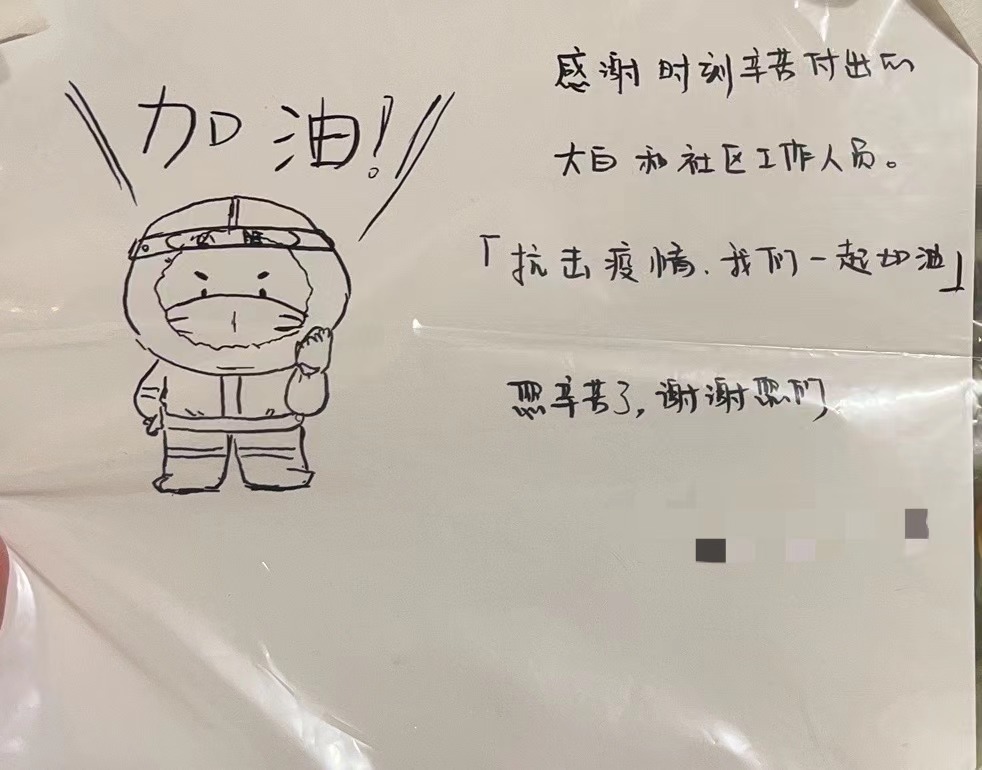 加油!
必勝
感谢时刻辛苦付出的
大白和社区工作人员。
「抗击疫情.我们一起加油」
您辛苦了,谢谢您们